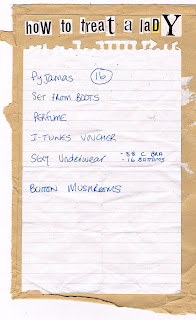 how to treat a laDY
Pyjamas 16
SET FROM BOOTS
PERFUME
I-TUNES VOUCHER
Sexy Underwear - 38 C BRA
- 16 BOTTOMS
BUTTON MUSHROOMS